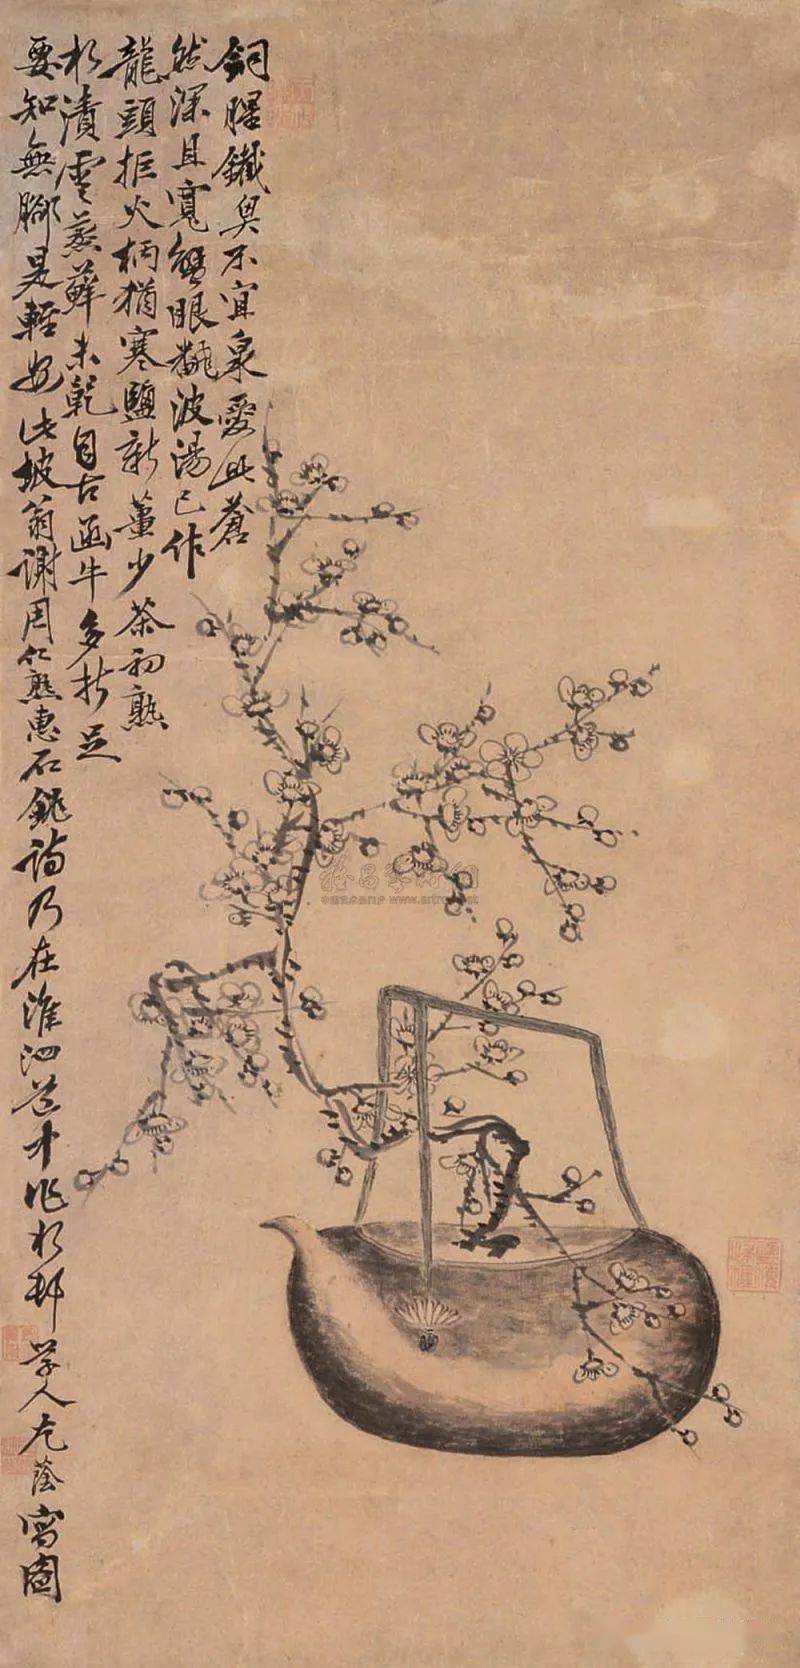 銅腥鐵臭不宜泉愛此蒼
然深且寬蟹眼翻波湯已作
龍頭拒火柄猶寒鹽新薑少茶初熟
水漬雲蒸蘚未乾自古函牛多折足
要知無腳是輕安此坡翁謝周仁熟惠石銚詩乃在淮泗道中作水邨學人尤蔭寫圖
雅昌艺术网
www.artron.net